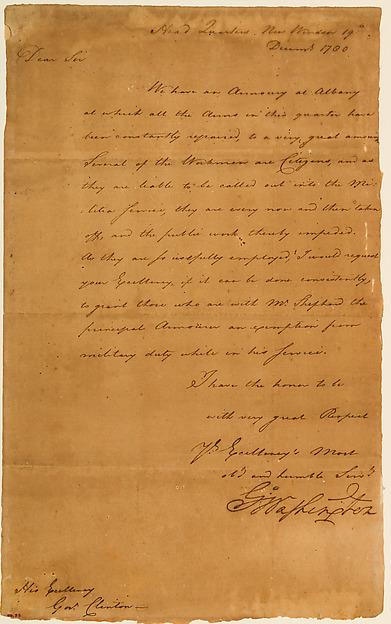 Head Quarters New Windsor 19th
Decemr 1780
Dear Sir
We have an Armoury at Albany
at which all the Arms in this quarter have
been constantly repaired, to a very great amount
Several of the Workmen are Citizens, and as
they are liable to be called out into the Mi-
litia service, they are every now and then taken
off, and the public work thereby impeded.
As they are so usefully employed, I would request
your Excellency, if it can be done consistently,
to grant those who are with Mr Shephard the
principal Armourer an exemption from
military duty while in his service.
I have the honor to be
with very great Respect
Yr Excellency's Most
Obt and humble Servt
Go Washington
His Excellency
Govr Clinton